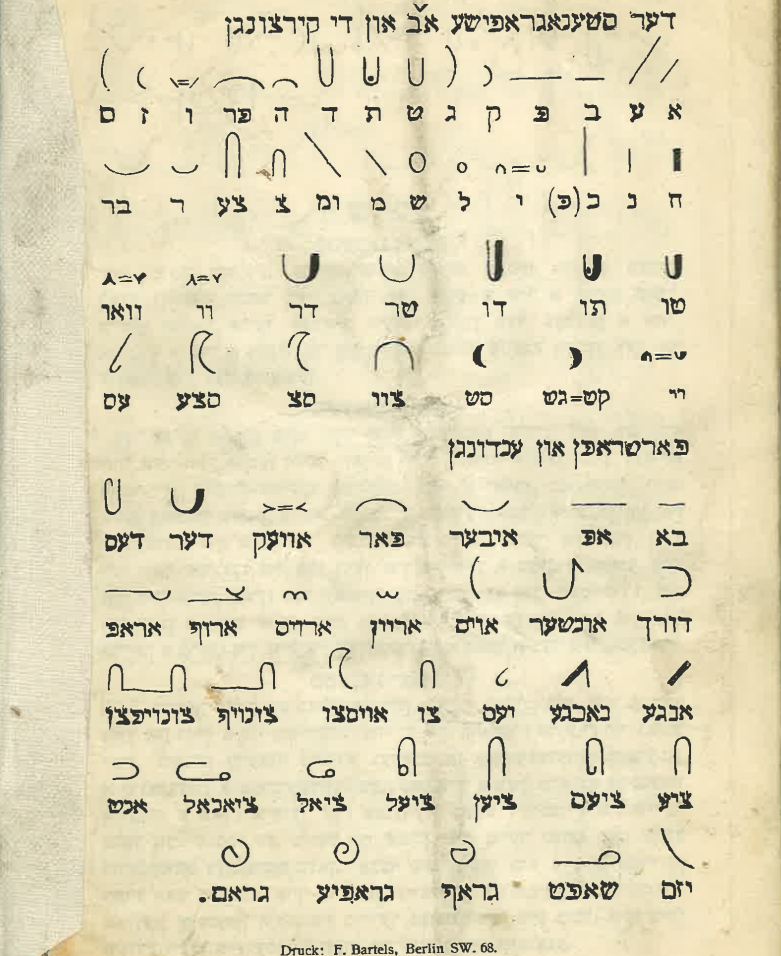 דער סטענאגראפישע אב און די קירצונגן
א ע ב פ ק ג ט ת ד ה פר ו ז ס
ח נ כ(פ) י ל ש מ ומ צ צע ר בר
טו תו דו טר דר וי וואו
יי קש=גש סש צוי סצ סצע עס
פארטראפן און ענדונגן
בא אפ איבער פאר אוועק דער דעס
דורך אונטער אויס אריין ארויס ארוף אראפ
אנגע נאכגע יעס צו אויסצו צונויף צונויפצו
ציע ציעס ציען ציעל ציאל ציאנאל אנט
יזם שאפט גראף גראפיע גראם.
Druck: F. Bartels, Berlin SW. 68.